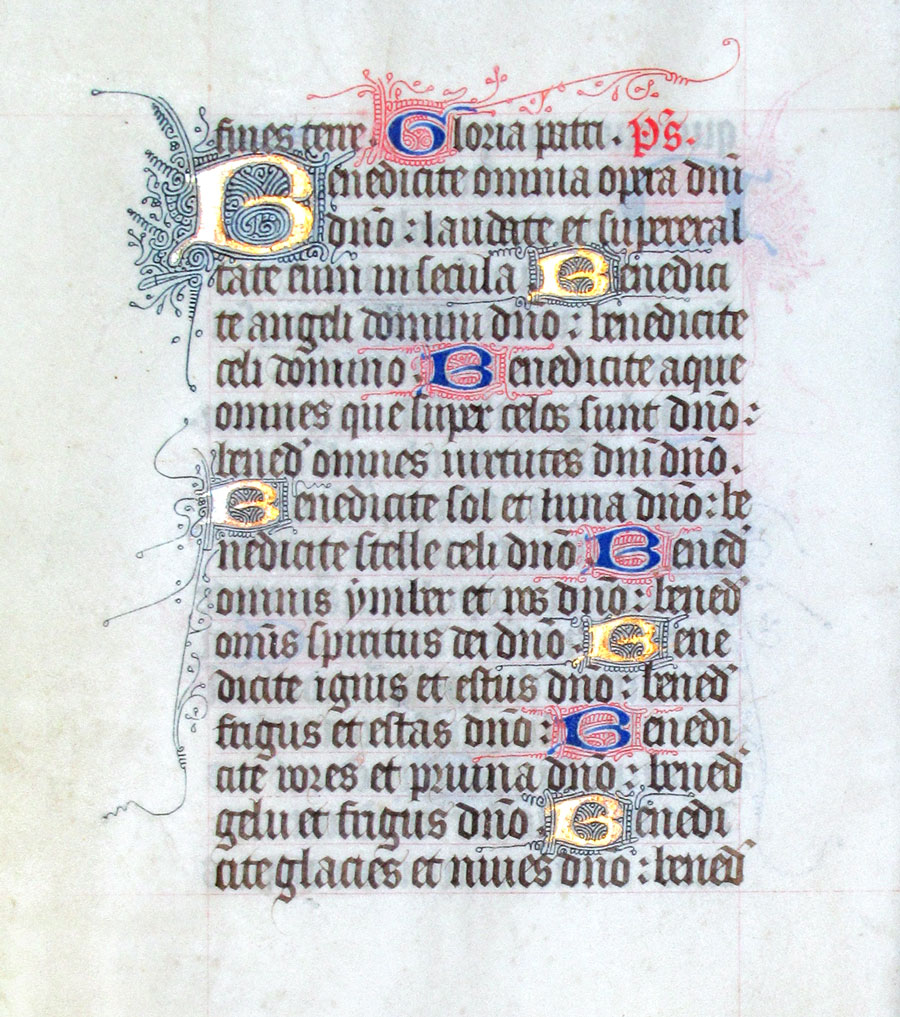 fines terre. Gloria patri. ps̄.
Benedicite omnia opera dn̄i
dn̄o : laudate et superexal
tate eum in secula Benedici
te angeli domini dn̄o : benedicite
celi domino. Benedicite aque
omnes que super celos sunt dn̄o :
bened' omnes virtutes dn̄i dn̄o.
Benedicite sol et luna dn̄o : be
nedicite stelle celi dn̄o Bened'
omnis ymber et ros dn̄o : bened'
om̄s spiritus dei dn̄o : Bene
dicite ignis et estus dn̄o : bened'
frigus et estas dn̄o : Benedi
cite rores et pruina dn̄o : bened'
gelu et frigus dn̄o Benedi
cite glacies et niues dn̄o : bened'